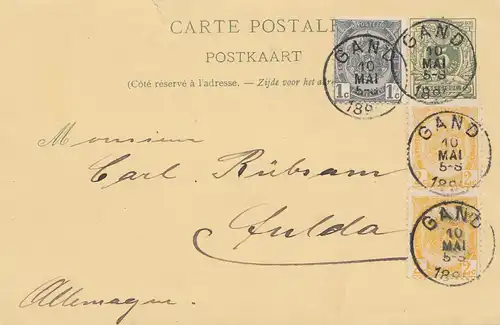 CARTE POSTALE
POSTKAART
(Côté réservé à l'adresse. – Zijde voor het
1c 1c
GAND
10
MAI
5-8
189
GAND
10
MAI
5-8
GAND
10
MAI
5-8
189
GAND
10
MAI
5-8
189
Monsieur
Carl Rübsam
Fulda
Allemagne.